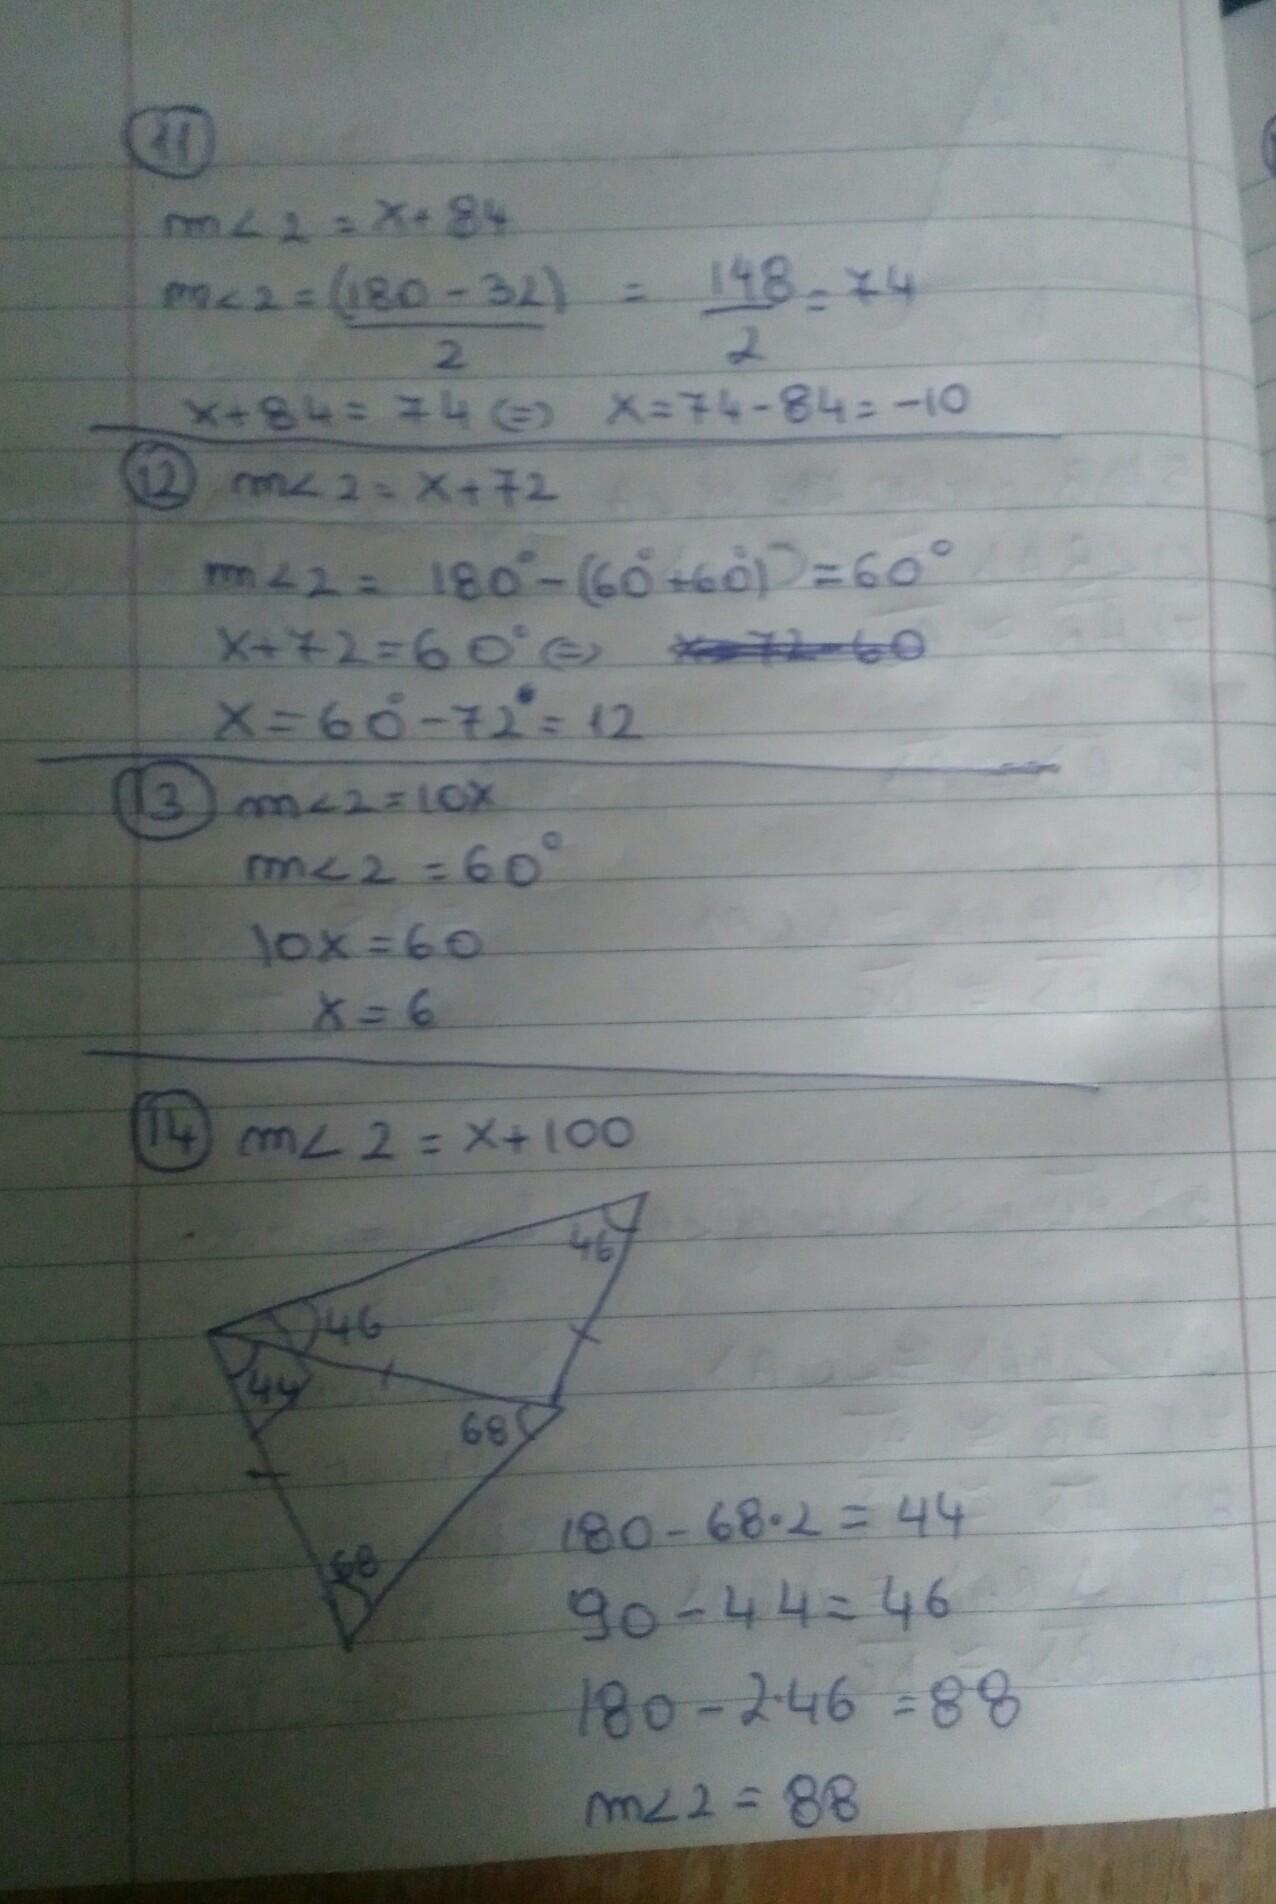 11
m<2 = x+84
m<2 = (180-32)/2 = 148/2 = 74
x+84 = 74 <=> x=74-84=-10
12 m<2 = x+72
m<2 = 180°-(60°+60°) = 60°
x+72=60° <=>
x=60°-72°=12
13 m<2=10x
m<2 = 60°
10x=60
x=6
14 m<2 = x+100
46
46
44
68
68
180-68·2 = 44
90-44=46
180-2·46 = 88
m<2 = 88